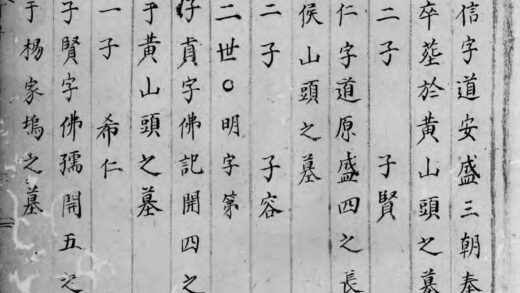 信字道安盛三朝奉
卒塟於黄山頭之墓
二子　子賢
仁字道原盛四之長
侯山頭之墓
二子　子容
二世○明字第
仔貞字佛記開四之
于黄山頭之墓
一子　希仁
子賢字佛孺開五之
于楊家塢之墓